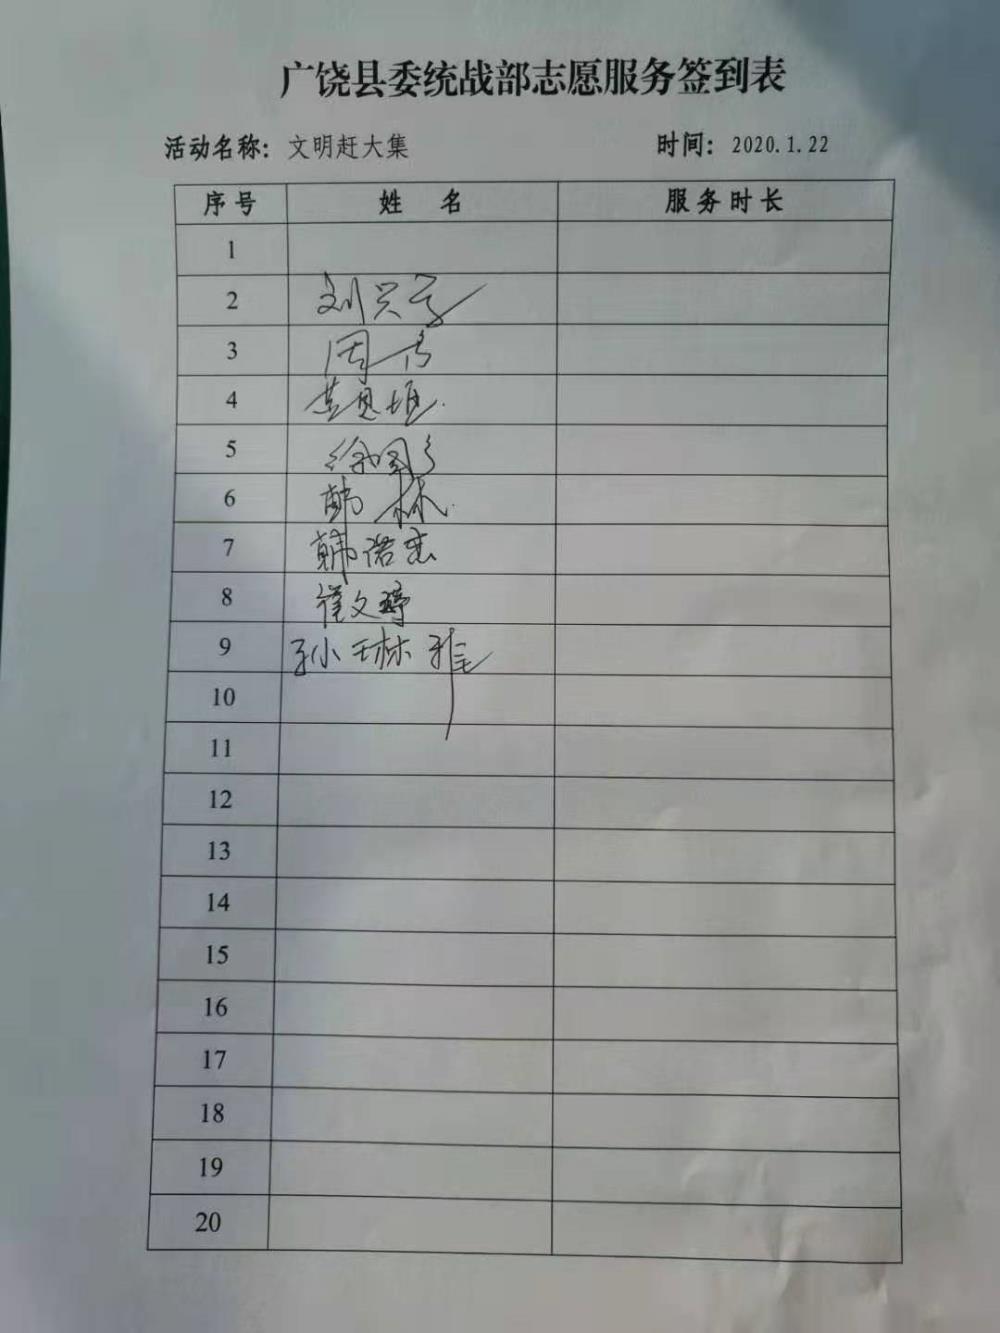 广饶县委统战部志愿服务签到表
活动名称：文明赶大集 时间：2020.1.22
序号 姓 名 服务时长
1
2 刘兴
3 周
4
5 徐
6 韩林
7 韩诺
8 崔文婷
9 孙琳雅
10
11
12
13
14
15
16
17
18
19
20